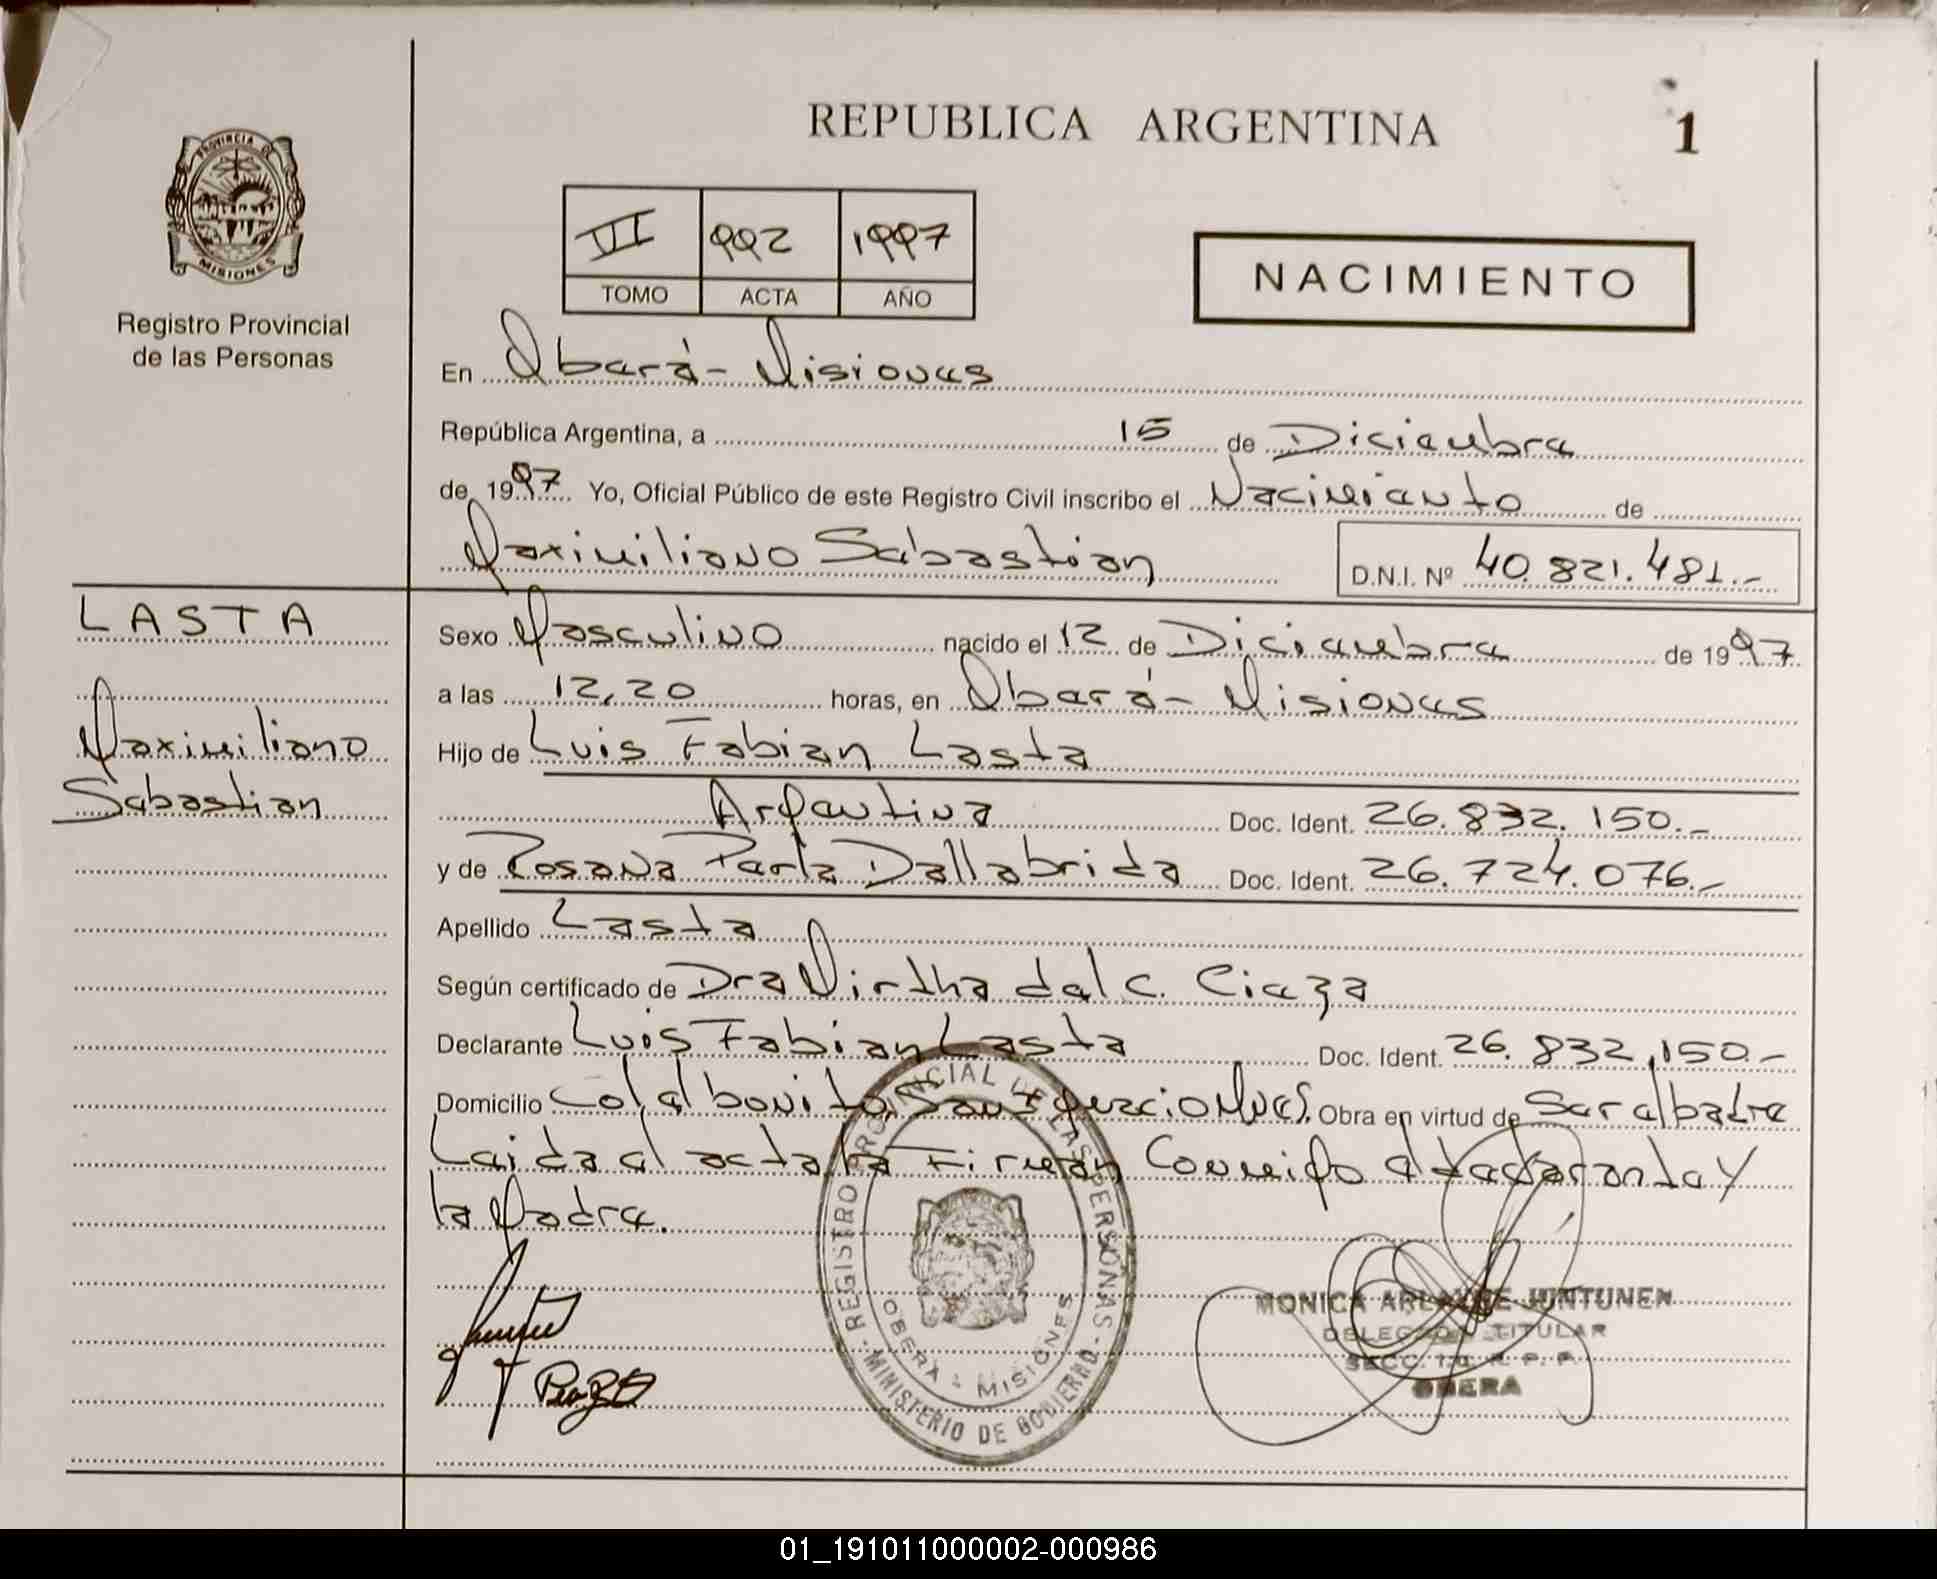 REPUBLICA ARGENTINA
1
PROVINCIA DE
MISIONES
Registro Provincial
de las Personas
III 992 1997
TOMO ACTA AÑO
NACIMIENTO
En Oberá - Misiones
República Argentina, a 15 de Diciembre
de 1997 Yo, Oficial Público de este Registro Civil inscribo el Nacimiento de
Maximiliano Sebastian D.N.I. Nº 40.821.481.-
LASTA
Maximiliano
Sebastian
Sexo Masculino nacido el 12 de Diciembre de 1997
a las 12,20 horas, en Oberá - Misiones
Hijo de Luis Fabian Lasta
Argentina Doc. Ident. 26.832.150.-
y de Rosana Perla Dallabrida Doc. Ident. 26.724.076.-
Apellido Lasta
Según certificado de Dra Mirtha del C. Cieza
Declarante Luis Fabian Lasta Doc. Ident. 26.832.150.-
Domicilio Col. el bonito, Obra en virtud de Ser el padre
Leida el acta la Firman Conmigo el y
la Madre.
REGISTRO PROVINCIAL DE LAS PERSONAS
OBERA - MISIONES
MINISTERIO DE GOBIERNO
MONICA JUNTUNEN
TITULAR
SECC. 1a R. P. P.
OBERA
01_191011000002-000986